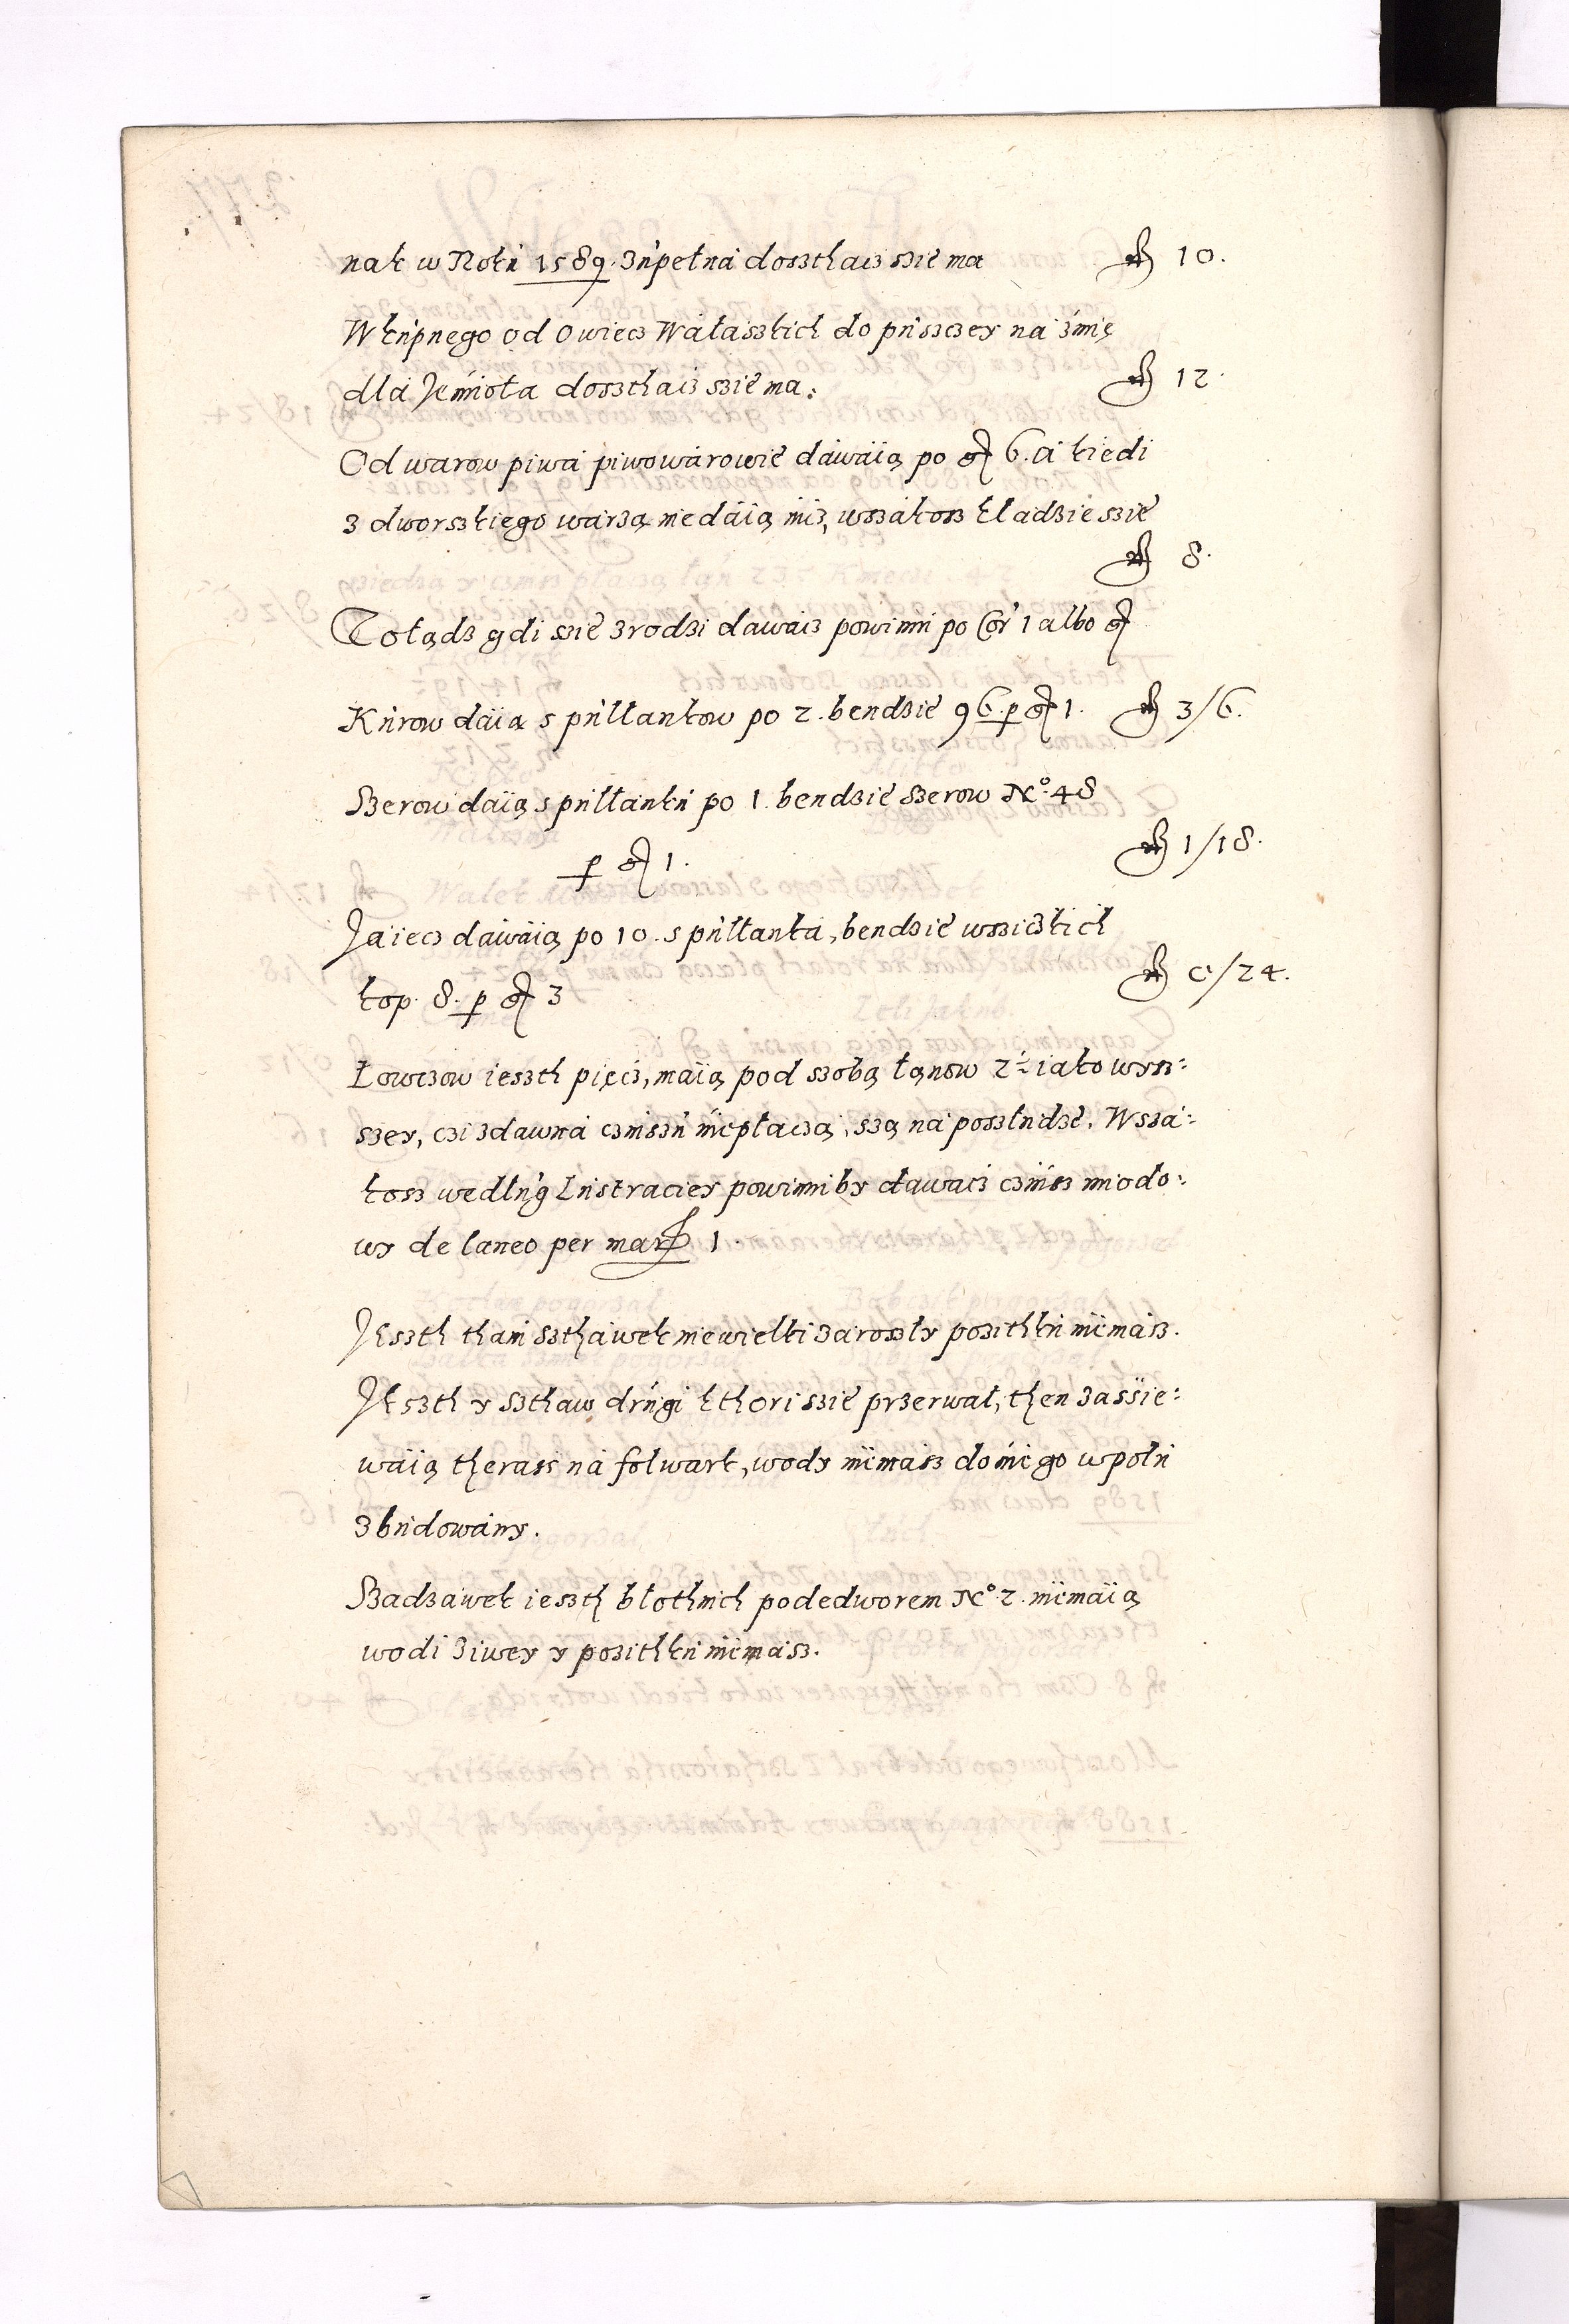 nak w Roku 1589. Zupełna dosztacz szie ma fl 10.
Wkupnego od owiecz Wałaszkich do pusczey na źimię
dla Jemioła dosztacz szie ma: fl 12.
Od warow piwa piwowarowie dawaią po gr 6. a kiedi
z dworszkiego warzą nie daią nicz, wszakosz kładzie szie
fl 8.
Zołądz gdi szie zrodzi dawacz powinni po Cor 1 albo gr
Kurow daia s pułłankow po 2. bendzie 96. p gr 1. fl 3/6.
Szerow daią s pułłanku po 1. bendzie szerow No. 48
p gr 1. fl 1/18.
Jaiecz dawaią po 10. s pułłanka, bendzie wsziczkich
kop. 8. p gr 3 fl 0/24.
Łowczow ieszth pięcz, maią pod szobą łanow 2 iako wyss:
szey, czi zdawna czinszu nie płaczą, szą na poszłudze. Wsza:
kosz wedlug Lustraciey powinniby dawacz czinsz miodo:
wy de laneo per mar 1.
Jeszth tham szthawek niewielki zaroszły pozithku niemasz.
Jeszth y szthaw drugi kthori szie przerwał, then zassie:
waią therasz na folwark, wody niemasz do niego wpołu
zbudowany.
Szadzawek ieszth błothnich podedworem No. 2. nie maią
wodi ziwey y pozithku nie masz.